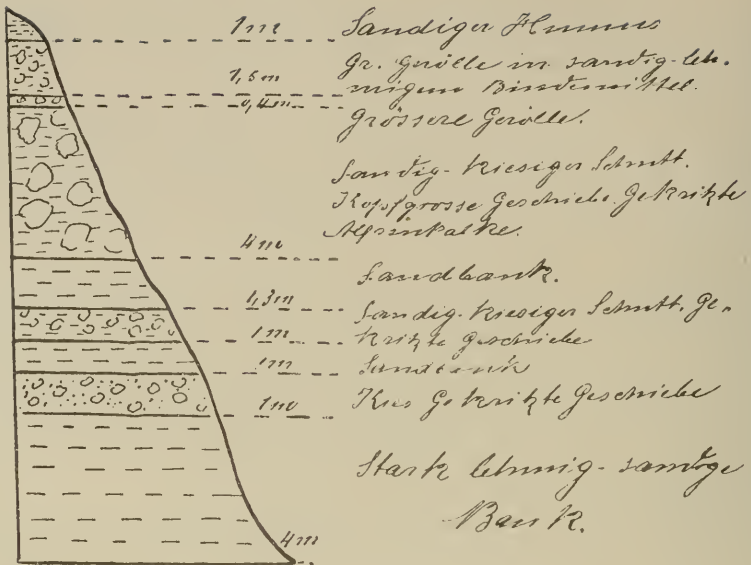 1m Sandiger Humus
Gr. Gerölle in sandig-leh-
1,5m migem Bindemittel.
0,4m Grössere Gerölle.
Sandig-kiesiger Schutt.
Kopfgrosse Geschiebe. Gekrizte
4m
Sandbank.
1,3m Sandig-kiesiger Schutt. Ge-
1m krizte Geschiebe
1m Sandbank
1m Kies Gekrizte Geschiebe
Stark lehmig-sandge
Bank.
4m